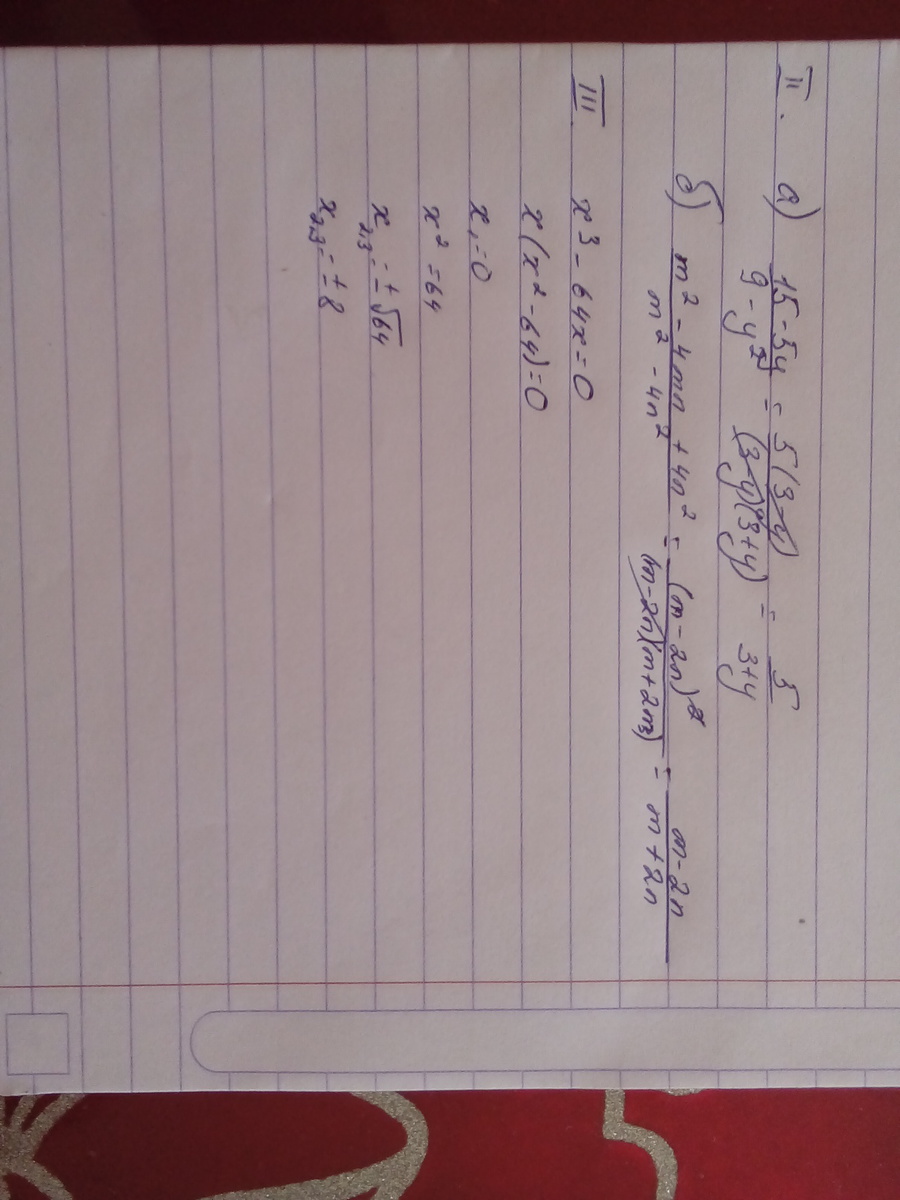 II. а) (15-5y)/(9-y²) = (5(3-y))/((3-y)(3+y)) = 5/(3+y)
б) (m²-4mn+4n²)/(m²-4n²) = (m-2n)²/((m-2n)(m+2n)) = (m-2n)/(m+2n)
III. x³-64x=0
x(x²-64)=0
x₁=0
x²=64
x₂,₃=±√64
x₂,₃=±8